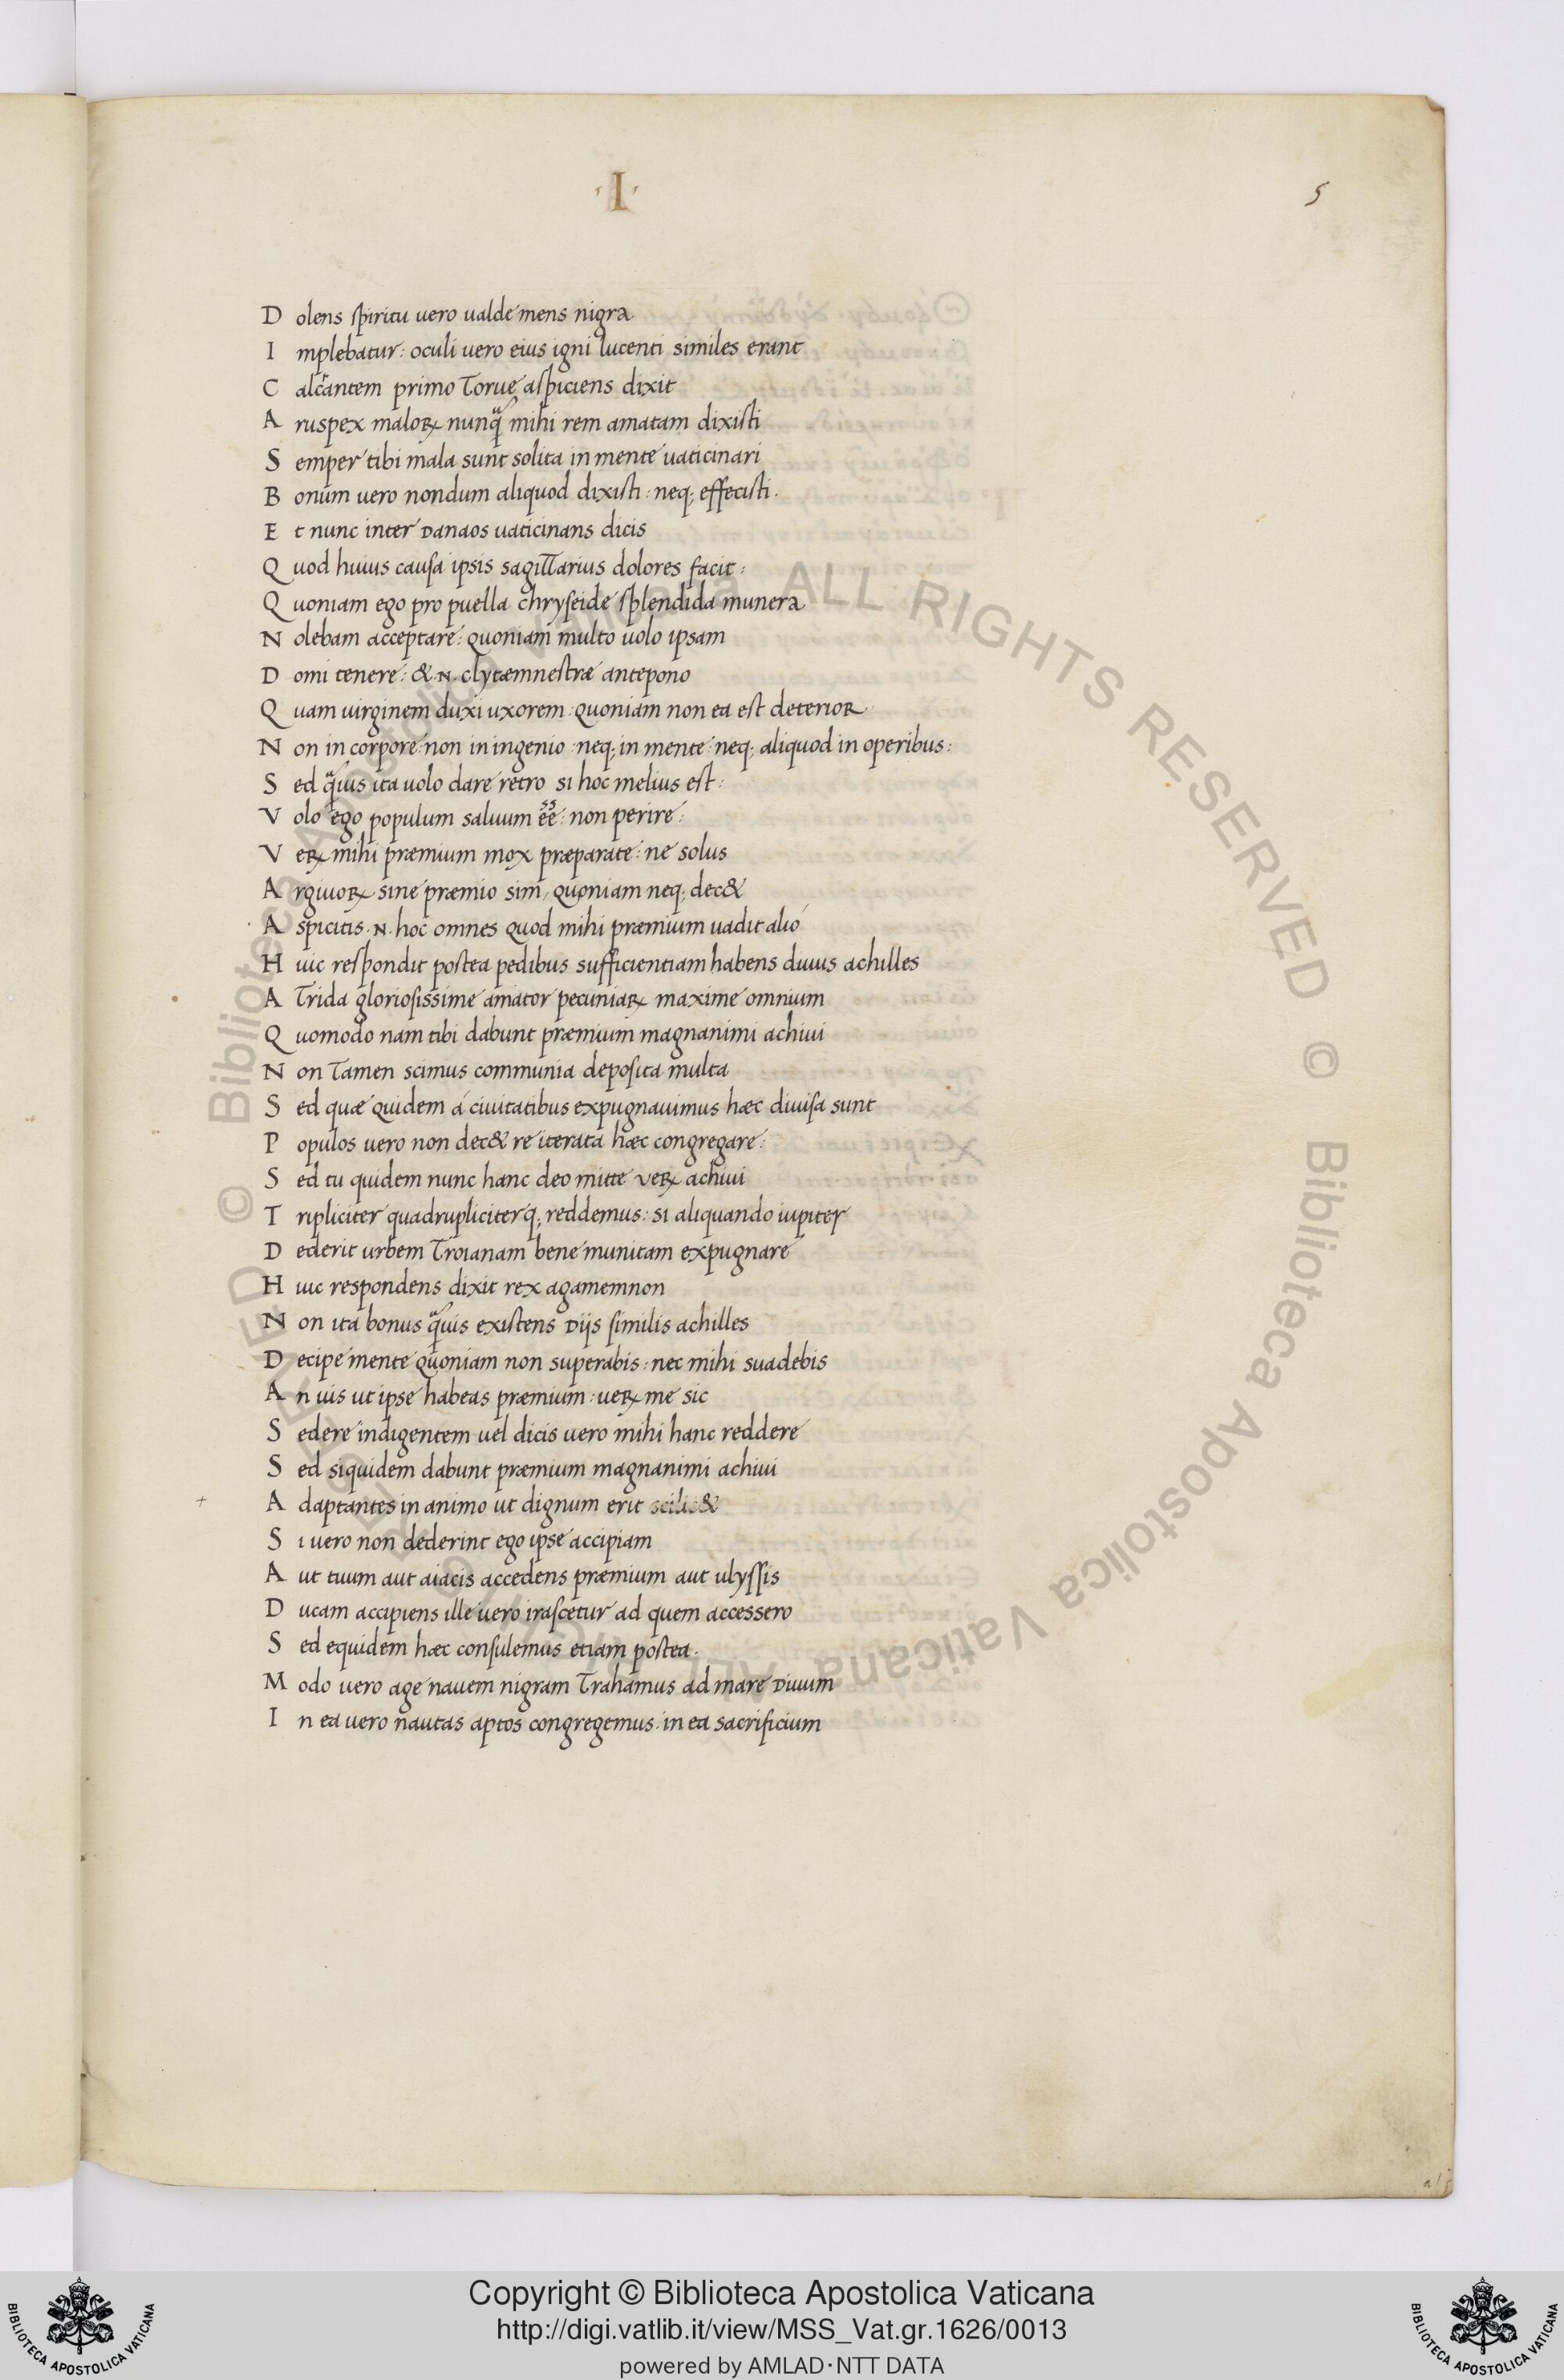 ·I·
5
D olens spiritu uero ualde mens nigra
I mplebatur: oculi uero eius igni lucenti similes erant
C alcãntem primo torue aspiciens dixit
A ruspex maloꝝ nunq̃ mihi rem amatam dixisti
S emper tibi mala sunt solita in mente uaticinari
B onum uero nondum aliquod dixisti: neq; effecisti.
E t nunc inter Danaos uaticinans dicis
Q uod huius causa ipsis sagittarius dolores facit:
Q uoniam ego pro puella chryseide splendida munera
N olebam acceptare: quoniam multo uolo ipsam
D omi tenere: & .N. clytæmnestræ antepono
Q uam uirginem duxi uxorem: quoniam non ea est deterior
N on in corpore: non in ingenio: neq; in mente: neq; aliquod in operibus:
S ed q̃uis ita uolo dare retro si hoc melius est:
V olo ego populum saluum eẽ: non perire:
V eꝝ mihi præmium mox præparate: ne solus
A rgiuoꝝ sine præmio sim, quoniam neq; dec&
A spicitis .N. hoc omnes quod mihi præmium uadit alió
H uic respondit postea pedibus sufficientiam habens diuus achilles
A trida gloriosissime amator pecuniaꝝ maxime omnium
Q uomodo nam tibi dabunt præmium magnanimi achiui
N on tamen scimus communia deposita multa
S ed quæ quidem á ciuitatibus expugnauimus hæc diuisa sunt
P opulos uero non dec& re iterata hæc congregare:
S ed tu quidem nunc hanc deo mitte veꝝ achiui
T ripliciter quadrupliciterq; reddemus: si aliquando iupiter
D ederit urbem Troianam bene munitam expugnare
H uic respondens dixit rex agamemnon
N on ita bonus q̃uis existens Dijs similis achilles
D ecipe mente quoniam non superabis: nec mihi suadebis
A n uis ut ipse habeas præmium: ueꝝ me sic
S edere indigentem uel dicis uero mihi hanc reddere
S ed siquidem dabunt præmium magnanimi achiui
+ A daptantes in animo ut dignum erit scilic&
S i uero non dederint ego ipse accipiam
A ut tuum aut aiacis accedens præmium aut ulyssis
D ucam accipiens ille uero irascetur ad quem accessero
S ed equidem hæc consulemus etiam postea:
M odo uero age nauem nigram Trahamus ad mare Diuum
I n ea uero nautas aptos congregemus: in ea sacrificium
© Biblioteca Apostolica Vaticana ALL RIGHTS RESERVED © Biblioteca Apostolica Vaticana ALL RIGHTS RESERVED
Copyright © Biblioteca Apostolica Vaticana
http://digi.vatlib.it/view/MSS_Vat.gr.1626/0013
powered by AMLAD·NTT DATA
BIBLIOTECA APOSTOLICA VATICANA
BIBLIOTECA APOSTOLICA VATICANA